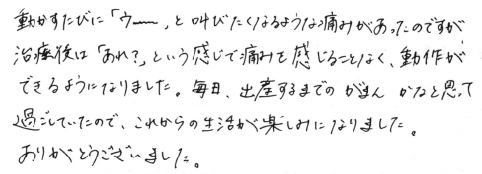 動かすたびに「ウー〜」と叫びたくなるような痛みがあったのですが
治療後は「あれ?」という感じで痛みを感じることなく、動作が
できるようになりました。毎日、出産するまでの がまん かなと思って
過ごしていたので、これからの生活が楽しみになりました。
ありがとうございました。